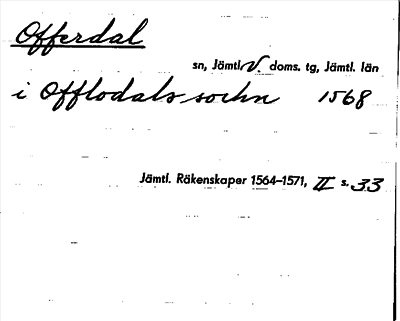 Offerdal
sn, Jämtl. V. doms. tg, Jämtl. län
i Offlodals sochn 1568
Jämtl. Räkenskaper 1564–1571, II s. 33